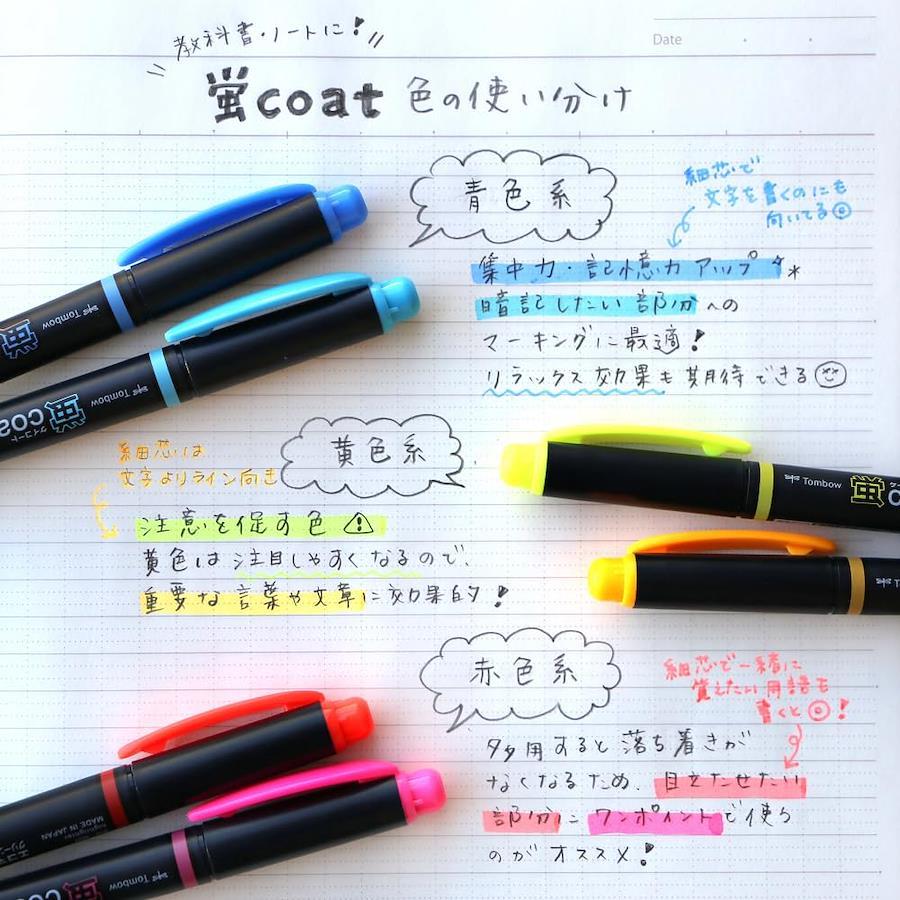 教科書・ノートに!
蛍coat 色の使い分け
Date
青色系
細芯で
文字を書くのにも
向いてる◎
集中力・記憶力アップ
暗記したい部分への
マーキングに最適!
リラックス効果も期待できる
Tombow
蛍
Tombow
蛍 coa
ケイコート
黄色系
細芯は
文字よりライン向き
注意を促す色⚠
黄色は注目しやすくなるので、
重要な言葉や文章に効果的!
Tombow 蛍
T
赤色系
細芯で一緒に
覚えたい用語も
書くと◎!
多用すると落ち着きが
なくなるため、目立たせたい
部分にワンポイントで使う
のがオススメ!
highlighter
MADE IN JAPAN
エコマ
グリーン
Tombow
蛍 coa